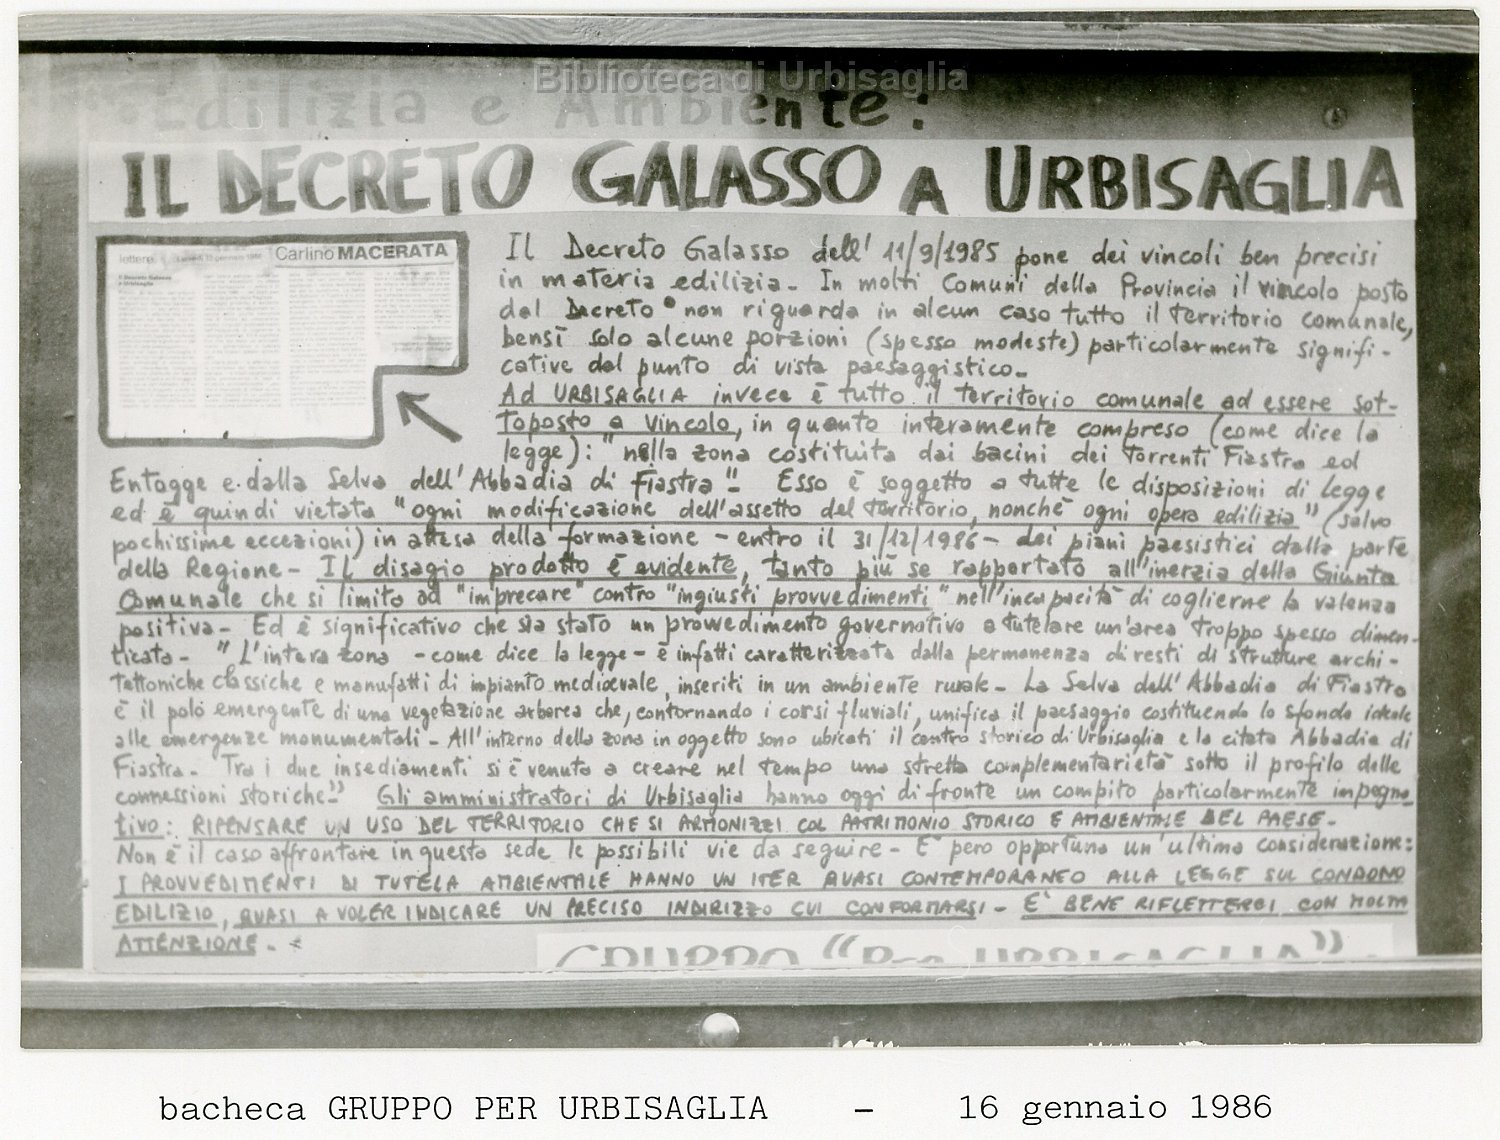 Biblioteca di Urbisaglia
Edilizia e Ambiente:
IL DECRETO GALASSO A URBISAGLIA
lettere
Carlino MACERATA
Il Decreto Galasso
a Urbisaglia
Il Decreto Galasso dell' 11/9/1985 pone dei vincoli ben precisi
in materia edilizia - In molti Comuni della Provincia il vincolo posto
dal Decreto non riguarda in alcun caso tutto il territorio comunale,
bensì solo alcune porzioni (spesso modeste) particolarmente signifi-
cative dal punto di vista paesaggistico -
Ad URBISAGLIA invece è tutto il territorio comunale ad essere sot-
toposto a vincolo, in quanto interamente compreso (come dice la
legge): "nella zona costituita dai bacini dei torrenti Fiastra ed
Entogge e dalla Selva dell'Abbadia di Fiastra" - Esso è soggetto a tutte le disposizioni di legge
ed è quindi vietata "ogni modificazione dell'assetto del territorio, nonchè ogni opera edilizia" (salvo
pochissime eccezioni) in attesa della formazione - entro il 31/12/1986 - dei piani paesistici dalla parte
della Regione - Il disagio prodotto è evidente, tanto più se rapportato all'inerzia della Giunta
Comunale che si limita ad "imprecare" contro "ingiusti provvedimenti" nell'incapacità di coglierne la valenza
positiva - Ed è significativo che sia stato un provvedimento governativo a tutelare un'area troppo spesso dimen-
ticata - "L'intera zona - come dice la legge - è infatti caratterizzata dalla permanenza di resti di strutture archi-
tettoniche classiche e manufatti di impianto medioevale, inseriti in un ambiente rurale - La Selva dell'Abbadia di Fiastra
è il polo emergente di una vegetazione arborea che, contornando i corsi fluviali, unifica il paesaggio costituendo lo sfondo ideale
alle emergenze monumentali - All'interno della zona in oggetto sono ubicati il centro storico di Urbisaglia e la citata Abbadia di
Fiastra - Tra i due insediamenti si è venuta a creare nel tempo una stretta complementarietà sotto il profilo delle
connessioni storiche" - Gli amministratori di Urbisaglia hanno oggi di fronte un compito particolarmente impegna-
tivo: RIPENSARE UN USO DEL TERRITORIO CHE SI ARMONIZZI COL PATRIMONIO STORICO E AMBIENTALE DEL PAESE -
Non è il caso affrontare in questa sede le possibili vie da seguire - E' pero opportuna un'ultima considerazione:
I PROVVEDIMENTI DI TUTELA AMBIENTALE HANNO UN ITER QUASI CONTEMPORANEO ALLA LEGGE SUL CONDONO
EDILIZIO, QUASI A VOLER INDICARE UN PRECISO INDIRIZZO CUI CONFORMARSI - E' BENE RIFLETTERCI CON MOLTA
ATTENZIONE -
GRUPPO "Per URBISAGLIA"
bacheca GRUPPO PER URBISAGLIA - 16 gennaio 1986